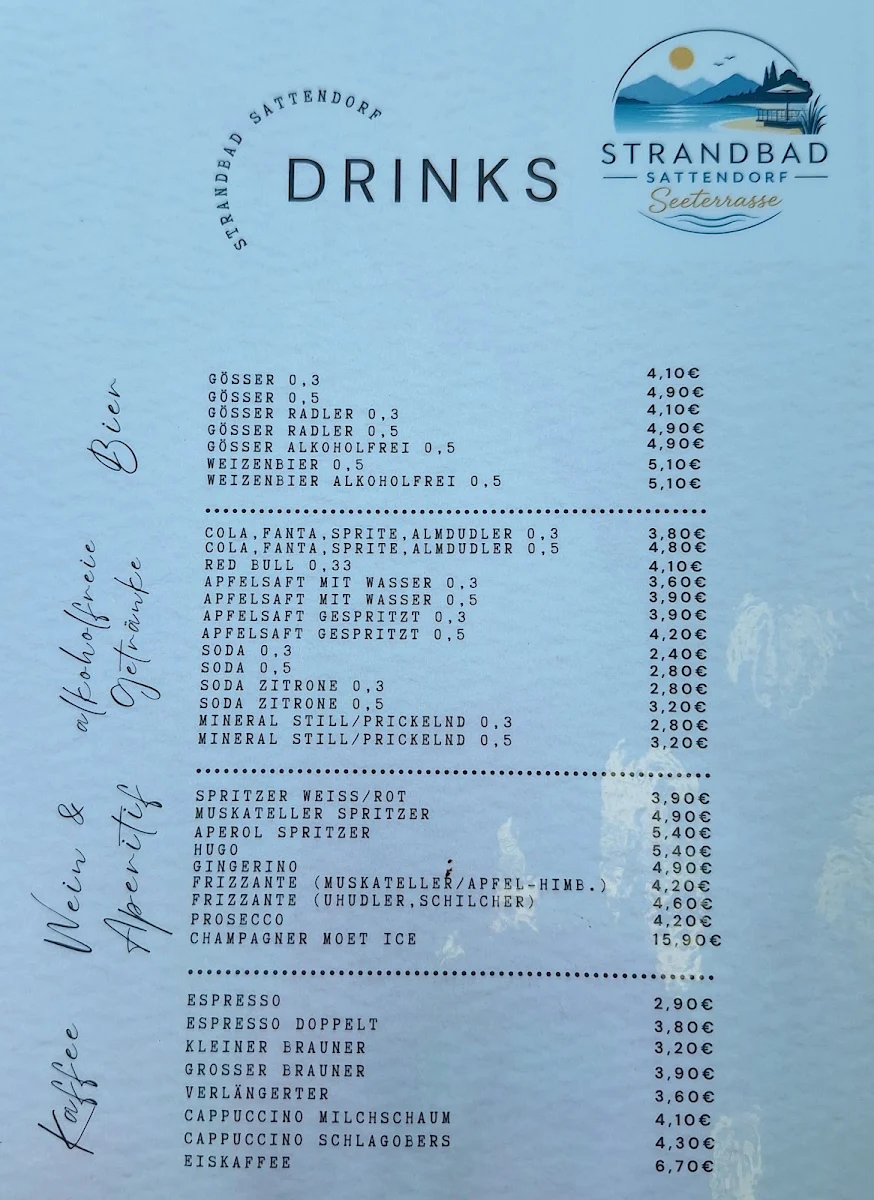 STRANDBAD SATTENDORF
DRINKS
STRANDBAD
SATTENDORF
Seeterrasse
Bier
GÖSSER 0,3 4,10€
GÖSSER 0,5 4,90€
GÖSSER RADLER 0,3 4,10€
GÖSSER RADLER 0,5 4,90€
GÖSSER ALKOHOLFREI 0,5 4,90€
WEIZENBIER 0,5 5,10€
WEIZENBIER ALKOHOLFREI 0,5 5,10€
alkoholfreie
Getränke
COLA,FANTA,SPRITE,ALMDUDLER 0,3 3,80€
COLA,FANTA,SPRITE,ALMDUDLER 0,5 4,80€
RED BULL 0,33 4,10€
APFELSAFT MIT WASSER 0,3 3,60€
APFELSAFT MIT WASSER 0,5 3,90€
APFELSAFT GESPRITZT 0,3 3,90€
APFELSAFT GESPRITZT 0,5 4,20€
SODA 0,3 2,40€
SODA 0,5 2,80€
SODA ZITRONE 0,3 2,80€
SODA ZITRONE 0,5 3,20€
MINERAL STILL/PRICKELND 0,3 2,80€
MINERAL STILL/PRICKELND 0,5 3,20€
Wein &
Aperitif
SPRITZER WEISS/ROT 3,90€
MUSKATELLER SPRITZER 4,90€
APEROL SPRITZER 5,40€
HUGO 5,40€
GINGERINO 4,90€
FRIZZANTE (MUSKATELLER/APFEL-HIMB.) 4,20€
FRIZZANTE (UHUDLER,SCHILCHER) 4,60€
PROSECCO 4,20€
CHAMPAGNER MOET ICE 15,90€
Kaffee
ESPRESSO 2,90€
ESPRESSO DOPPELT 3,80€
KLEINER BRAUNER 3,20€
GROSSER BRAUNER 3,90€
VERLÄNGERTER 3,60€
CAPPUCCINO MILCHSCHAUM 4,10€
CAPPUCCINO SCHLAGOBERS 4,30€
EISKAFFEE 6,70€